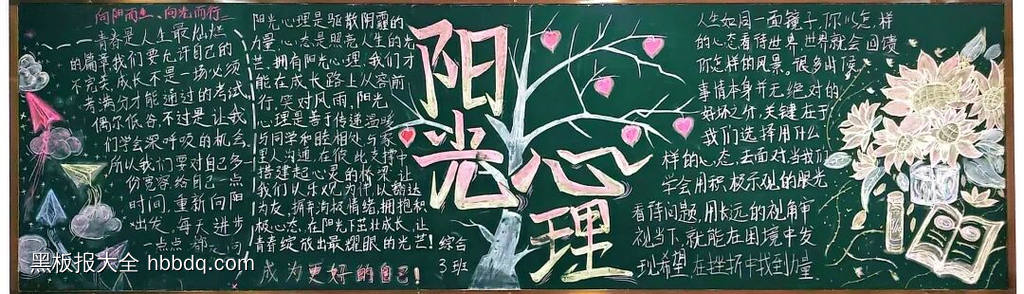 向阳而生、向光而行
青春是人生最灿烂
的篇章我们要允许自己的
不完美,成长不是一场必须
考满分才能通过的考试
偶尔低谷不过是让我
们学会深呼吸的机会,
所以我们要对自己多一
份宽容,给自己一点
时间,重新向阳
出发,每天进步
一点点
阳光心理是驱散阴霾的
力量,心态是照亮人生的光
芒,拥有阳光心理,我们才
能在成长路上从容前
行,笑对风雨,阳光
心理是善于传递温暖
与同学和睦相处与家
里人沟通,在彼此支撑中
搭建起心灵的桥梁,让
我们从乐观为伴,以豁达
为友,摒弃消极情绪,拥抱积
极心态,在阳光下茁壮成长,让
青春绽放出最耀眼的光芒!
成为更好的自己!
综合
3班
阳光心理
人生如同一面镜子,你以怎样
的心态看待世界,世界就会回馈
你怎样的风景。很多时候
事情本身并无绝对的
好坏之分,关键在于
我们选择用什么
样的心态,去面对,当我们
学会用积极乐观的眼光
看待问题,用长远的视角审
视当下,就能在困境中发
现希望,在挫折中找到力量
黑板报大全 hbbdq.com